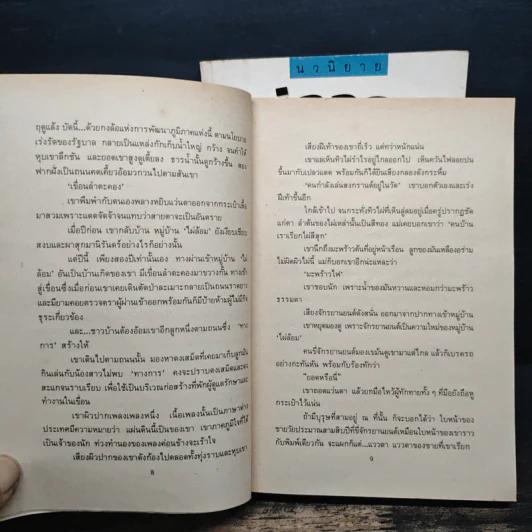 นวนิยาย
ฤดูแล้ง บัดนี้...ด้วยกงล้อแห่งการพัฒนาภูมิภาคแห่งนี้ ตามนโยบาย
เร่งรัดของรัฐบาล กลายเป็นแหล่งกักเก็บน้ำใหญ่ กว้าง จนทำให้
หุบเขาลึกชัน และยอดเขาสูงดูเตี้ยลง ธารน้ำนั้นดูกว้างขึ้น สอง
ฟากฝั่งเป็นถนนคดเคี้ยวอ้อมวกวนไปตามสันเขา
'เขื่อนลำตะคอง'
เขาพึมพำกับตนเองพลางหยิบแว่นตาออกจากกระเป๋าเสื้อ
มาสวมเพราะแดดจัดจ้าจนแทบว่าสายตาจะเป็นอันตราย
เมื่อปีก่อน เขากลับบ้าน หมู่บ้าน 'ไผ่ล้อม' ยังเงียบเชียบ
สงบและผาสุกมานิรันดร์อย่างไรก็อย่างนั้น
แต่ปีนี้ เพียงสองปีเท่านั้นเอง ทางผ่านเข้าหมู่บ้าน 'ไผ่
ล้อม' อันเป็นบ้านเกิดของเขา มีเขื่อนลำตะคองมาขวางกั้น ทางเข้า
สู่เขื่อนซึ่งเมื่อก่อนเขาเคยเดินตัดป่าละเมาะกลายเป็นถนนราดยาง
และมียามคอยตรวจตราผู้ผ่านเข้าออกพร้อมกันก็มีป้ายห้ามผู้ไม่มีกิจ
ธุระเกี่ยวข้อง
และ...ชาวบ้านต้องอ้อมเขาอีกลูกหนึ่งตามถนนซึ่ง 'ทาง
การ' สร้างให้
เขาเดินไปตามถนนนั้น มองหาดงเสม็ดที่เคยมาเก็บลูกมัน
กินเล่นกับน้องสาวไม่พบ 'ทางการ' คงจะปราบดงเสม็ดและดง
สะแกจนราบเรียบ เพื่อใช้เป็นบริเวณก่อสร้างที่พักผู้ดูแลรักษาและ
ทำงานในเขื่อน
เขาผิวปากเพลงเพลงหนึ่ง เนื้อเพลงนั้นเป็นภาษาต่าง
ประเทศมีความหมายว่า แผ่นดินนี้เป็นของเขา เขาภาคภูมิใจที่ได้
เป็นเจ้าของนัก ท่วงทำนองของเพลงค่อนข้างจะเร้าใจ
เสียงผิวปากของเขาดังก้องไปตลอดทั้งทุ่งราบและหุบเขา
8
เสียงฝีเท้าของเขาถี่เร็ว แต่ทว่าหนักแน่น
เขาแลเห็นทิวไผ่รำไรอยู่ไกลออกไป เห็นควันไฟลอยปน
ขึ้นมากับเปลวแดด พร้อมกันก็ได้ยินเสียงกลองดังกระหึ่ม
"คนกำลังเล่นสงกรานต์อยู่ในวัด" เขาบอกตัวเองและเร่ง
ฝีเท้าขึ้นอีก
ใกล้เข้าไป จนกระทั่งทิวไผ่ที่เห็นลู่ลมอยู่เมื่อครู่ปรากฏชัด
แก่ตา ลำต้นของไผ่เหล่านั้นเป็นสีทอง แม่เคยบอกเขาว่า "คนบ้าน
เราเรียกไผ่สีสุก"
เขานึกถึงมะพร้าวต้นที่อยู่หน้าเรือน ลูกของมันเหลืองอร่าม
ไม่ผิดผิวไผ่นี้ แม่ก็บอกเขาอีกน่ะแหละว่า
"มะพร้าวไฟ"
เขาชอบนัก เพราะน้ำของมันหวานและหอมกว่ามะพร้าว
ธรรมดา
เสียงจักรยานยนต์ดังสนั่น ออกมาจากปากทางเข้าหมู่บ้าน
เขาหยุดมองดู เพราะจักรยานยนต์เป็นความใหม่ของหมู่บ้าน
'ไผ่ล้อม'
คนขี่จักรยานยนต์มองเขม้นดูเขามาแต่ไกล แล้วก็เบรครถ
อย่างกะทันหัน พร้อมกับร้องทักว่า
"ยอดหรือนี่"
เขาถอดแว่นตา แล้วยกมือไหว้ผู้ทักทายทั้ง ๆ ที่มือยังถือหู
กระเป๋าไว้แน่น
ถ้ามีบุรุษที่สามอยู่ ณ ที่นั้น ก็จะบอกได้ว่า ใบหน้าของ
ชายวัยประมาณสามสิบปีที่ขี่จักรยานยนต์เหมือนใบหน้าของเขาราว
กับพิมพ์เดียวกัน จะแผกก็แต่...แววตา แววตาของชายที่เขาเรียก
9